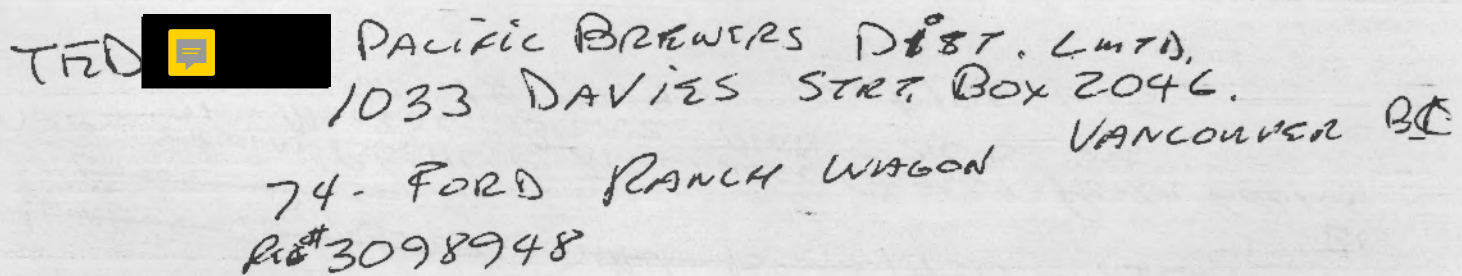 TED PACIFIC BREWERS DIST. LMTD.
1033 DAVIES STRT. BOX 2046.
VANCOUVER BC
74 - FORD RANCH WAGON
REG# 3098948